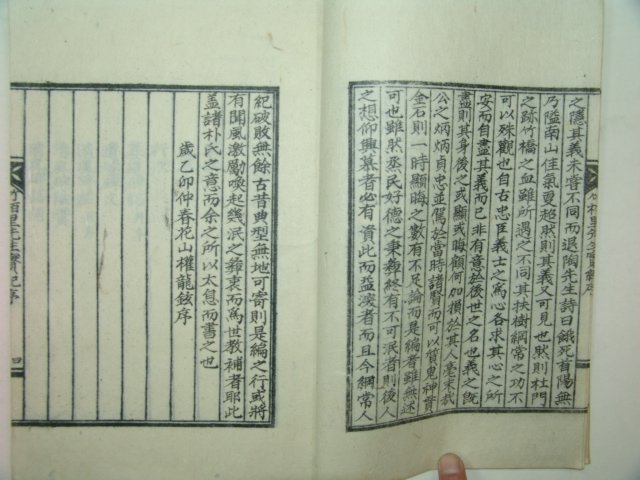 之隱其義未嘗不同而退陶先生詩曰餓死首陽無
乃隘南山佳氣更超然則其義又可見也然則杜門
之跡竹橋之血雖所遇之不同其扶樹綱常之功不
可以殊觀也自古忠臣義士之爲心各求其心之所
安而自盡其義而已非有意於後世之名也義之旣
盡則其身後之或顯或晦顧何加損於其人毫末哉
公之炳炳貞忠並駕於當時諸賢而可以質鬼神貫
金石則一時顯晦之數有不足論而是編者雖無述
可也雖然烝民好德之秉彝終有不可泯者則後人
之想仰興慕者必有資此而益深者而且今綱常人
紀破敗無餘古昔典型無地可寄則是編之行或將
有聞風激勵喚起幾泯之彝衷而爲世敎補者耶此
盖諸朴氏之意而余之所以太息而書之也
歲乙卯仲春花山權龍鉉序
竹栢里先生實紀序
四